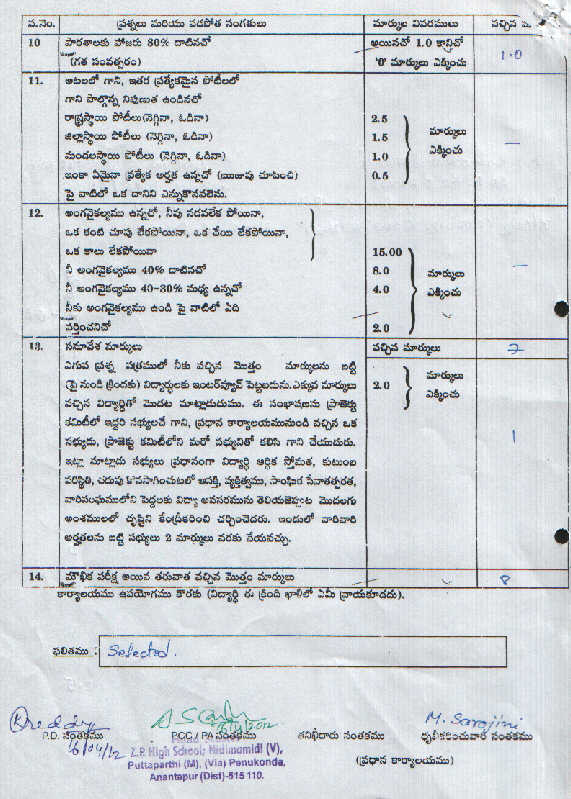 వ.నెం. ప్రశ్నలు మరియు పదపోత సంగతులు మార్కుల వివరములు వచ్చిన
10 పాఠశాలకు హాజరు 80% దాటినచో అయినచో 1.0 కానిచో 1.0
(గత సంవత్సరం) '0' మార్కులు ఎక్కించు
11. ఆటలలో గాని, ఇతర ప్రత్యేకమైన పోటీలలో
గాని పాల్గొన్న నిపుణుత ఉండినచో
రాష్ట్రస్థాయి పోటీలు(నెగ్గినా, ఓడినా) 2.5 మార్కులు
జిల్లాస్థాయి పోటీలు (నెగ్గినా, ఓడినా) 1.5 ఎక్కించు
మండలస్థాయి పోటీలు (నెగ్గినా, ఓడినా) 1.0
ఇంకా ఏమైనా ప్రత్యేక అర్హత ఉన్నచో (ఋజువు చూపించి) 0.5
పై వాటిలో ఒక దానిని ఎన్నుకొనవలెను.
12. అంగవైకల్యము ఉన్నదో, నీవు నడవలేక పోయినా,
ఒక కంటి చూపు లేకపోయినా, ఒక చేయి లేకపోయినా,
ఒక కాలు లేకపోయినా 15.00
నీ అంగవైకల్యము 40% దాటినచో 8.0 మార్కులు
నీ అంగవైకల్యము 40-30% మధ్య ఉన్నచో 4.0 ఎక్కించు
నీకు అంగవైకల్యము ఉండి పై వాటిలో ఏది
వర్తించనిచో 2.0
13. సమావేశ మార్కులు వచ్చిన మార్కులు 7
ఎగువ ప్రశ్న పత్రములో నీకు వచ్చిన మొత్తం మార్కులను బట్టి
(పై నుండి క్రిందకు) విద్యార్థులకు ఇంటర్వ్యూకే పెట్టబడును.ఎక్కువ మార్కులు 2.0 మార్కులు
వచ్చిన విద్యార్థితో మొదట మాట్లాడుదుము. ఈ సంభాషణను ప్రాజెక్టు ఎక్కించు
కమిటీలో ఇద్దరి సభ్యులచే గాని, ప్రధాన కార్యాలయమునుండి వచ్చిన ఒక
సభ్యుడు, ప్రాజెక్టు కమిటీలోని మరో సభ్యునితో కలిసి గాని చేయుదురు. 1
ఇట్లా మాట్లాడు సభ్యులు ప్రధానంగా విద్యార్థి ఆర్థిక స్తోమత, కుటుంబ
పరిస్థితి, చదువు కొనసాగించుటలో ఆసక్తి, వ్యక్తిత్వము, సాంఘిక సేవాతత్పరత,
వారిసంఘములోని పెద్దలకు విద్యా అవసరమును తెలియజెప్పుట మొదలగు
అంశములలో దృష్టిని కేంద్రీకరించి చర్చించెదరు. ఇందులో వారివారి
అర్హతలను బట్టి సభ్యులు 2 మార్కులు వరకు వేయవచ్చు.
14. మౌఖిక పరీక్ష అయిన తరువాత వచ్చిన మొత్తం మార్కులు 8
కార్యాలయము ఉపయోగము కొరకు (విద్యార్థి ఈ క్రింది ఖాళీలో ఏమీ వ్రాయకూడదు).
ఫలితము : Selected.
Reddy M. Sarojini
P.D. సంతకము PCC / PA సంతకము తనిఖీదారు సంతకము ధృవీకరించువారి సంతకము
16/04/12 Z.P. High School, Nidimamidi (V), (ప్రధాన కార్యాలయము)
Puttaparthi (M), (Via) Penukonda,
Anantapur (Dist)-515 110.